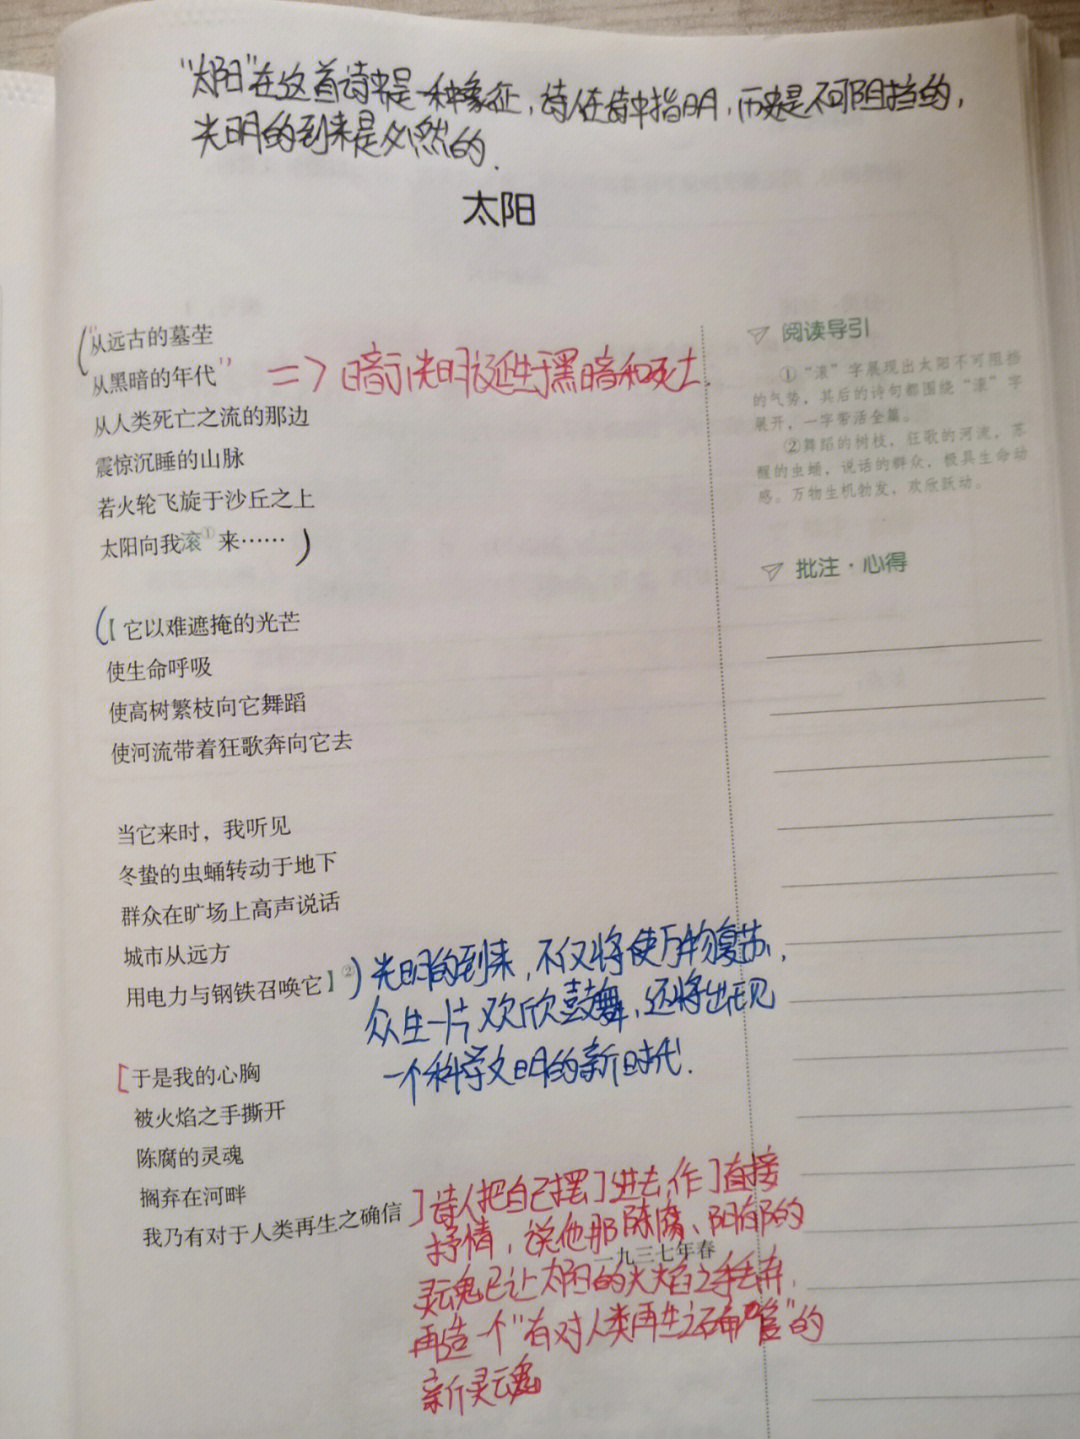 “太阳”在这首诗中是一种象征，诗人在诗中指明，历史是不可阻挡的，
光明的到来是必然的.
太阳
“从远古的墓茔
从黑暗的年代” => 暗示光明诞生于黑暗和死亡.
从人类死亡之流的那边
震惊沉睡的山脉
若火轮飞旋于沙丘之上
太阳向我滚①来……
【它以难遮掩的光芒
使生命呼吸
使高树繁枝向它舞蹈
使河流带着狂歌奔向它去
当它来时，我听见
冬蛰的虫蛹转动于地下
群众在旷场上高声说话
城市从远方
用电力与钢铁召唤它】②
光明的到来，不仅将使万物复苏，
众生一片欢欣鼓舞，还将出现
一个科学文明的新时代.
于是我的心胸
被火焰之手撕开
陈腐的灵魂
搁弃在河畔
我乃有对于人类再生之确信
一九三七年春
诗人把自己摆了进去，作了直接
抒情，说他那陈腐、阴郁的
灵魂已让太阳的火焰之手丢弃，
再造一个“有对人类再生之确信”的
新灵魂
阅读导引
①“滚”字展现出太阳不可阻挡
的气势，其后的诗句都围绕“滚”字
展开，一字带活全篇。
②舞蹈的树枝，狂歌的河流，苏
醒的虫蛹，说话的群众，极具生命动
感。万物生机勃发，欢欣跃动。
批注·心得